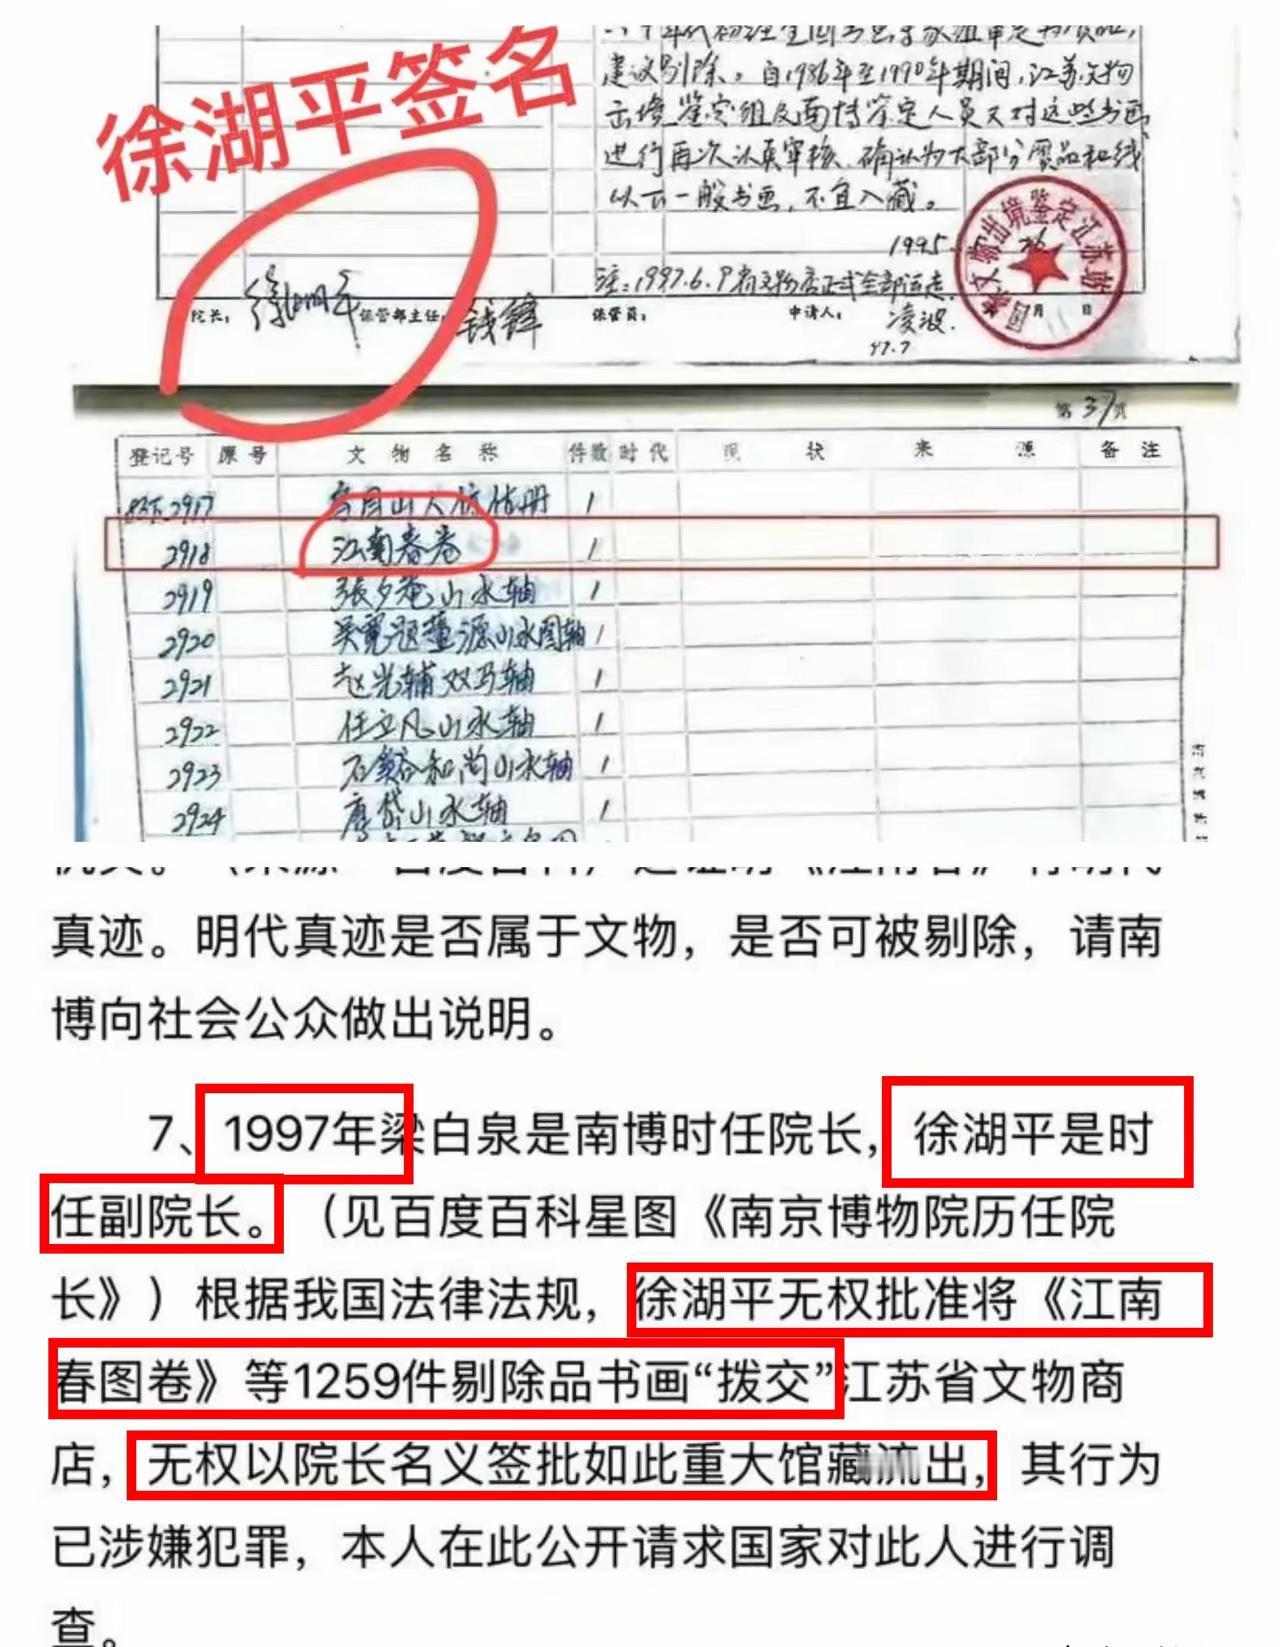 徐湖平签名
建议剔除。自1986年至1990年期间,江苏文物
出境鉴定组及南博鉴定人员又对这些书画
进行再次认真审核,确认为大部分赝品和线
以下一般书画,不宜入藏。
1995
注:1997.6.9
院长: 徐湖平 保管部主任: 钱锋 保管员: 申请人: 凌波.
月 日
97.7
国家文物出境鉴定江苏站
第 37 页
登记号 原号 文物名称 件数 时代 现状 来源 备注
2917 1
2918 江南春卷 1
2919 張夕菴山水轴 1
2920 吴寬题董源山水图轴 1
2921 赵光辅双马轴 1
2922 任立凡山水轴 1
2923 石溪和尚山水轴 1
2924 唐岱山水轴 1
真迹。明代真迹是否属于文物,是否可被剔除,请南
博向社会公众做出说明。
7、1997年梁白泉是南博时任院长,徐湖平是时
任副院长。(见百度百科星图《南京博物院历任院
长》)根据我国法律法规,徐湖平无权批准将《江南
春图卷》等1259件剔除品书画“拨交”江苏省文物商
店,无权以院长名义签批如此重大馆藏流出,其行为
已涉嫌犯罪,本人在此公开请求国家对此人进行调
查。